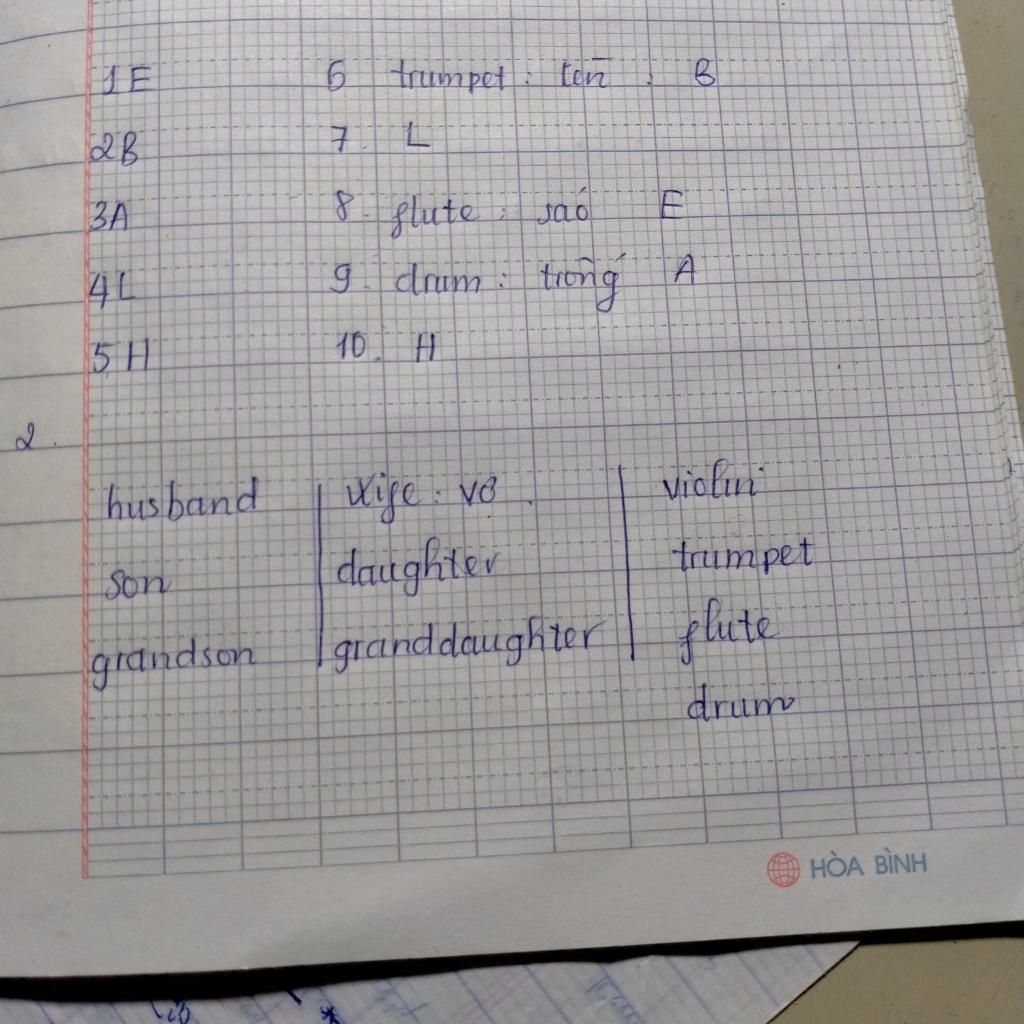 1E 6 trumpet : ken : B
2B 7. L
3A 8. flute : saó E
4L 9. drum : trống A
5H 10. H
2.
husband wife : vợ . violin
son daughter trumpet
grandson granddaughter flute
drum
HÒA BÌNH